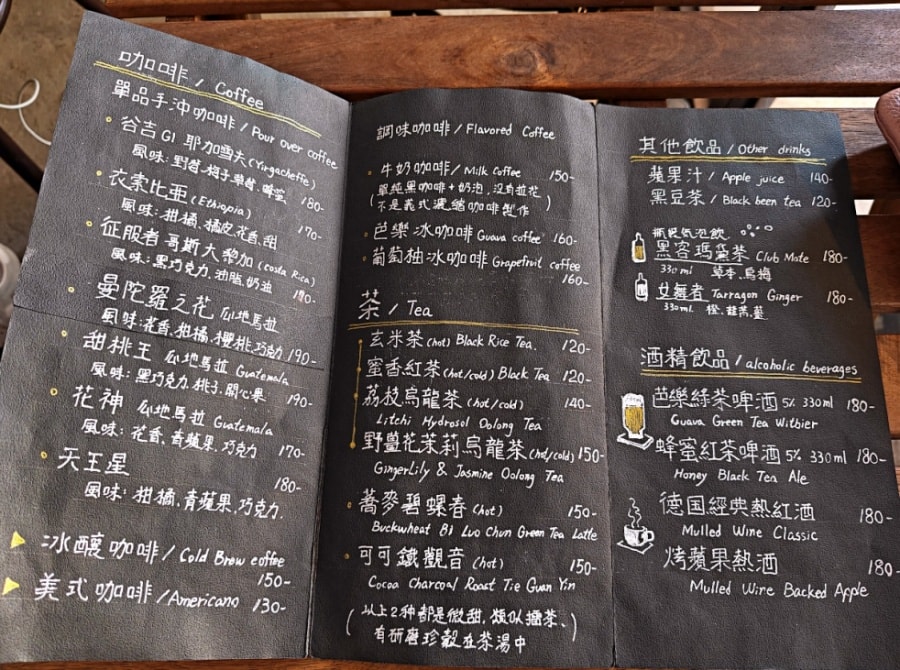 咖啡 / Coffee
單品手沖咖啡 / Pour over coffee
谷吉 G1 耶加雪夫 (Yirgacheffe)
風味: 野薑, 梅子, 草醬, 蜂蜜 180-
衣索比亞 (Ethiopia)
風味: 柑橘, 橘皮, 花香, 甜 170-
征服者 哥斯大黎加 (Costa Rica)
風味: 黑巧克力, 油脂, 奶油 190-
曼陀羅之花 瓜地馬拉
風味: 花香, 柑橘, 櫻桃, 巧克力 190-
甜桃王 瓜地馬拉 Guatemala
風味: 黑巧克力, 桃子, 開心果 190-
花神 瓜地馬拉 Guatemala
風味: 花香, 青蘋果, 巧克力 170-
天王星
180-
風味: 柑橘, 青蘋果, 巧克力.
冰釀咖啡 / Cold Brew coffee
150-
美式咖啡 / Americano 130-
調味咖啡 / Flavored Coffee
牛奶咖啡 / Milk Coffee 150-
(單純黑咖啡+奶泡, 沒有拉花
不是義式濃縮咖啡製作)
芭樂冰咖啡 Guava coffee 160-
葡萄柚冰咖啡 Grapefruit coffee
160-
茶 / Tea
玄米茶 (hot) Black Rice Tea. 120-
蜜香紅茶 (hot/cold) Black Tea 120-
荔枝烏龍茶 (hot/cold) 140-
Litchi Hydrosol Oolong Tea
野薑花茉莉烏龍茶 (hot/cold) 150-
GingerLily & Jasmine Oolong Tea
蕎麥碧螺春 (hot) 150-
Buckwheat Bi Luo Chun Green Tea Latte
可可鐵觀音 (hot) 150-
Cocoa Charcoal Roast Tie Guan Yin
(以上2种都是微甜, 類似擂茶、
有研磨珍穀在茶湯中)
其他飲品 / Other drinks
蘋果汁 / Apple juice 140-
黑豆茶 / Black been tea 120-
瓶裝氣泡飲
黑客瑪黛茶 Club Mate 180-
330 ml 草本, 烏梅
女舞者 Tarragon Ginger 180-
330ml. 橙, 蒔蒿, 薑
酒精飲品 / alcoholic beverages
芭樂綠茶啤酒 5% 330ml 180-
Guava Green Tea Witbier
蜂蜜紅茶啤酒 5% 330ml 180-
Honey Black Tea Ale
德国經典熱紅酒 180-
Mulled Wine Classic
烤蘋果熱酒 180-
Mulled Wine Backed Apple